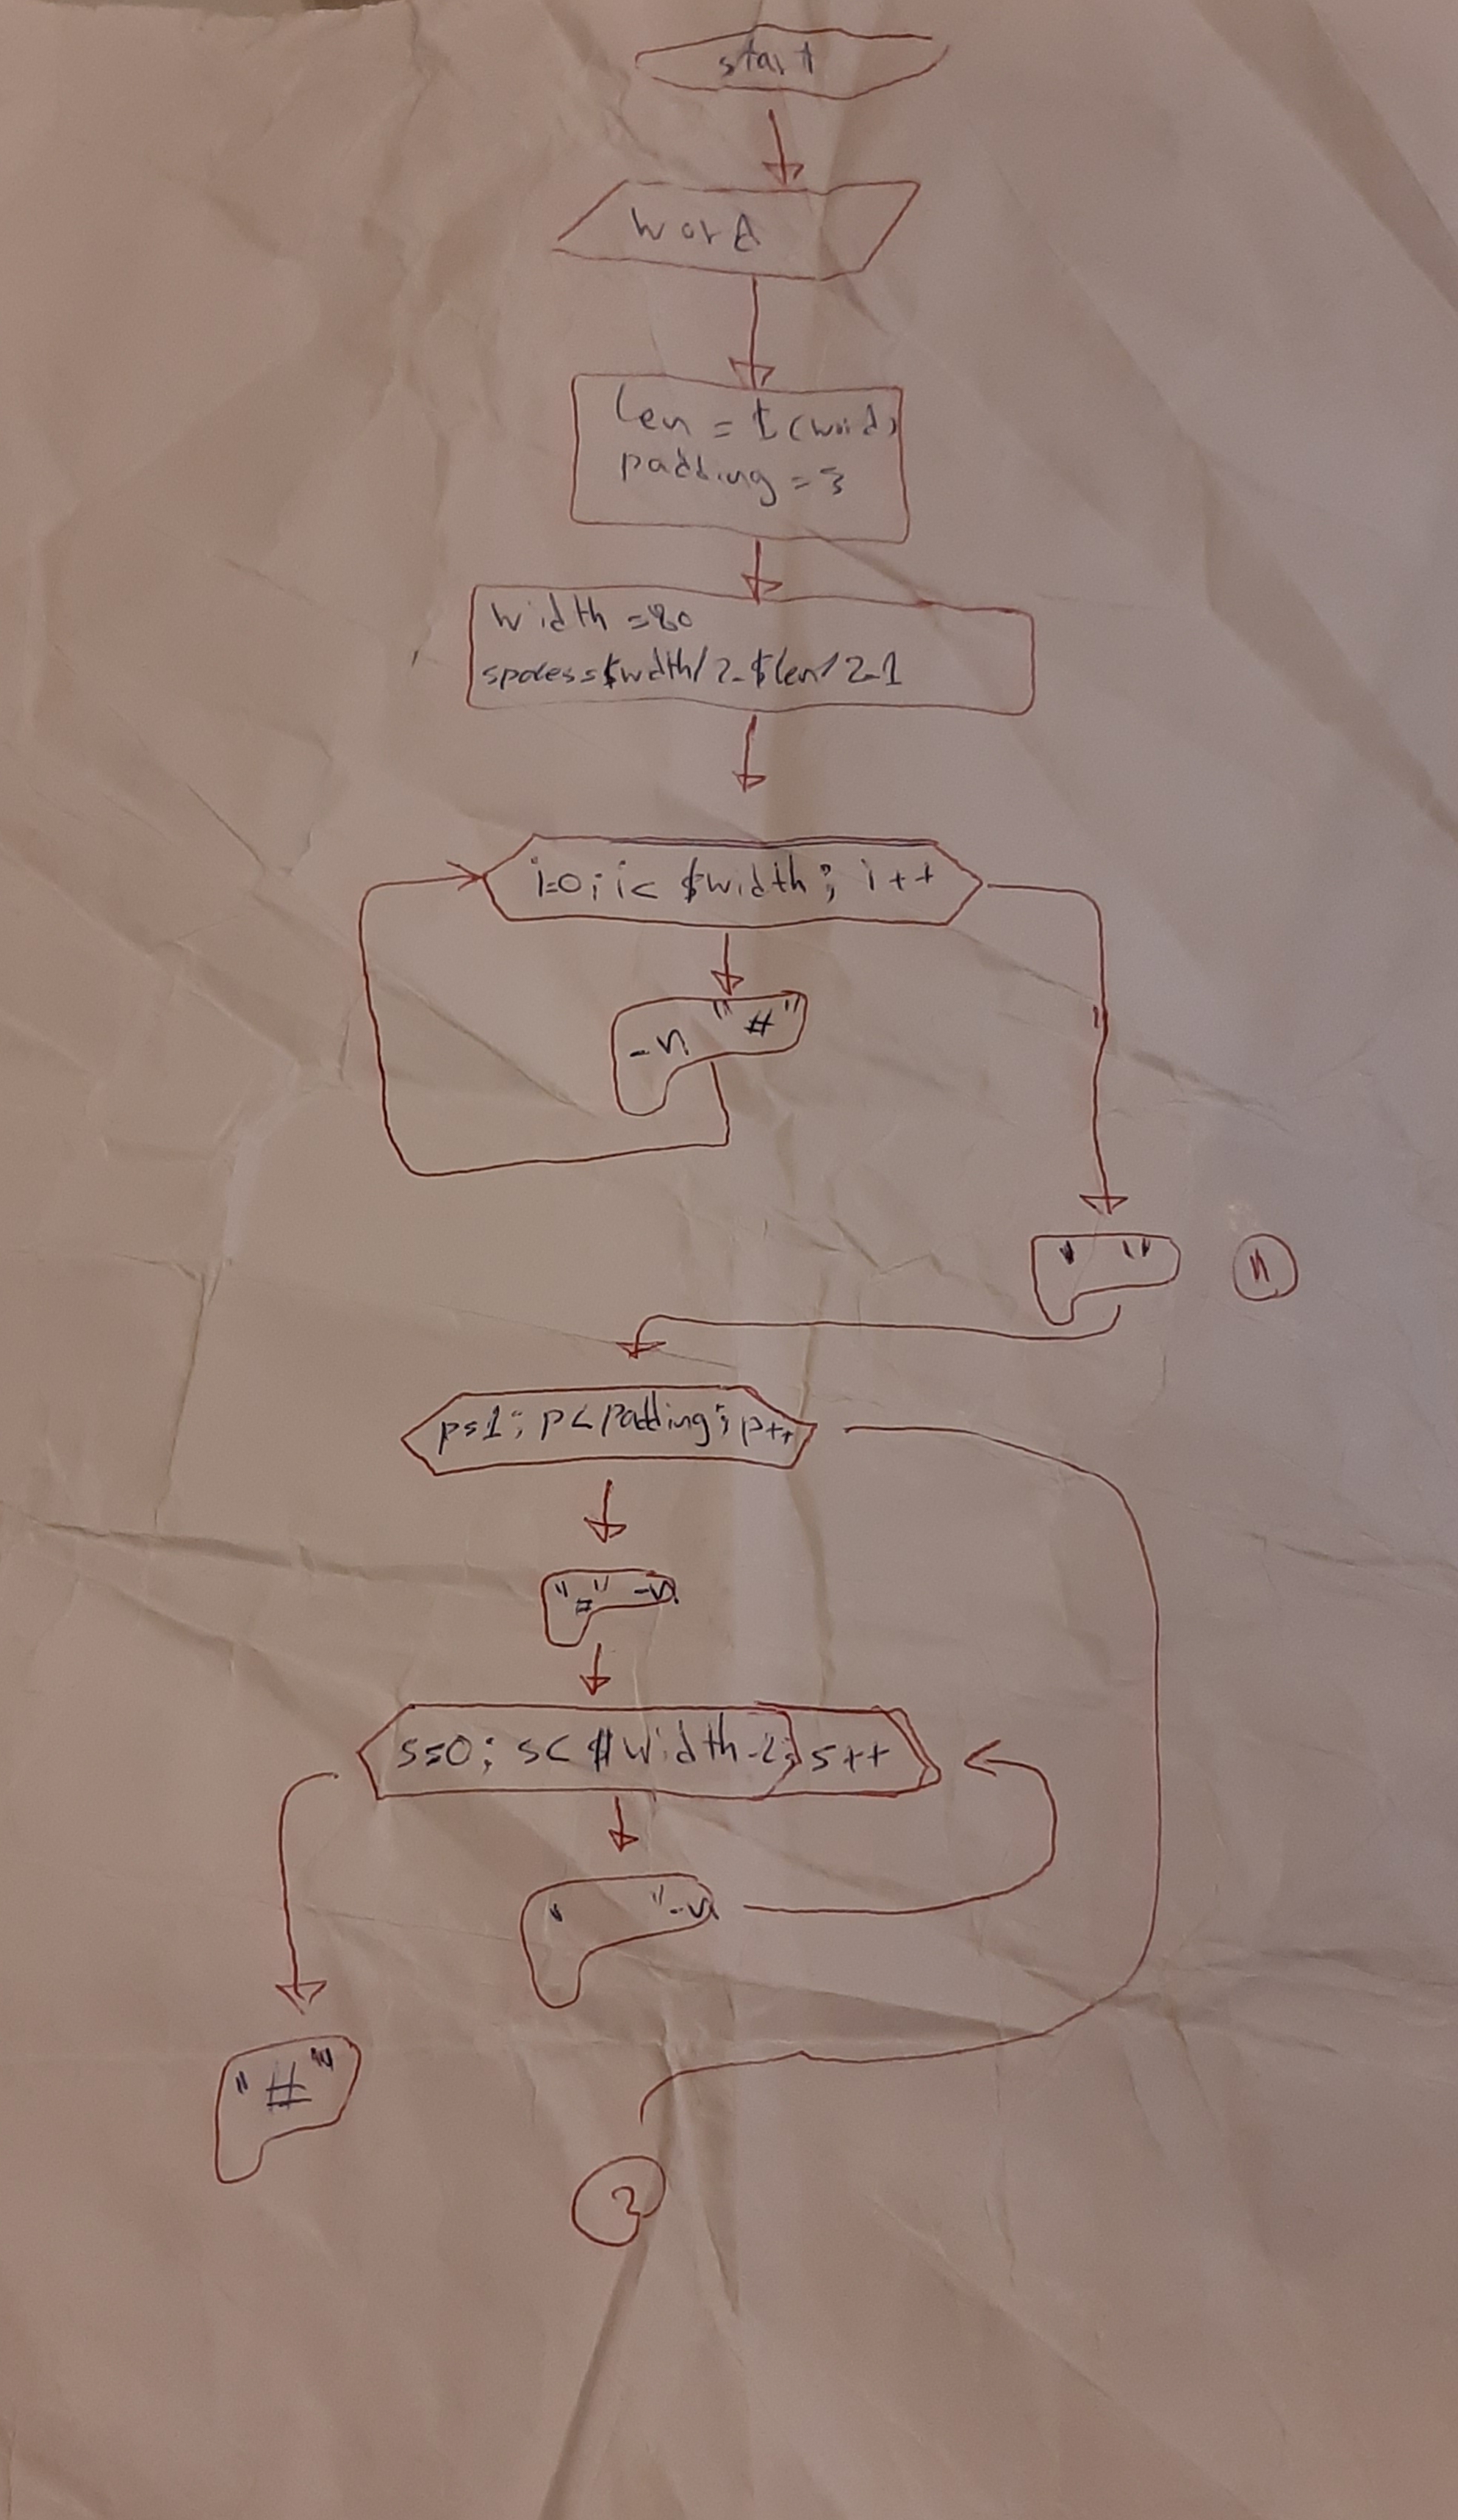 start
word
len = L(word)
padding = 3
width = 80
spaces = $width/2-$len/2-1
i=0; i< $width; i++
-n "#"
" "
p=1; p<padding; p++
"#" -n
s=0; s< $width-2; s++
" " -n
"#"
2